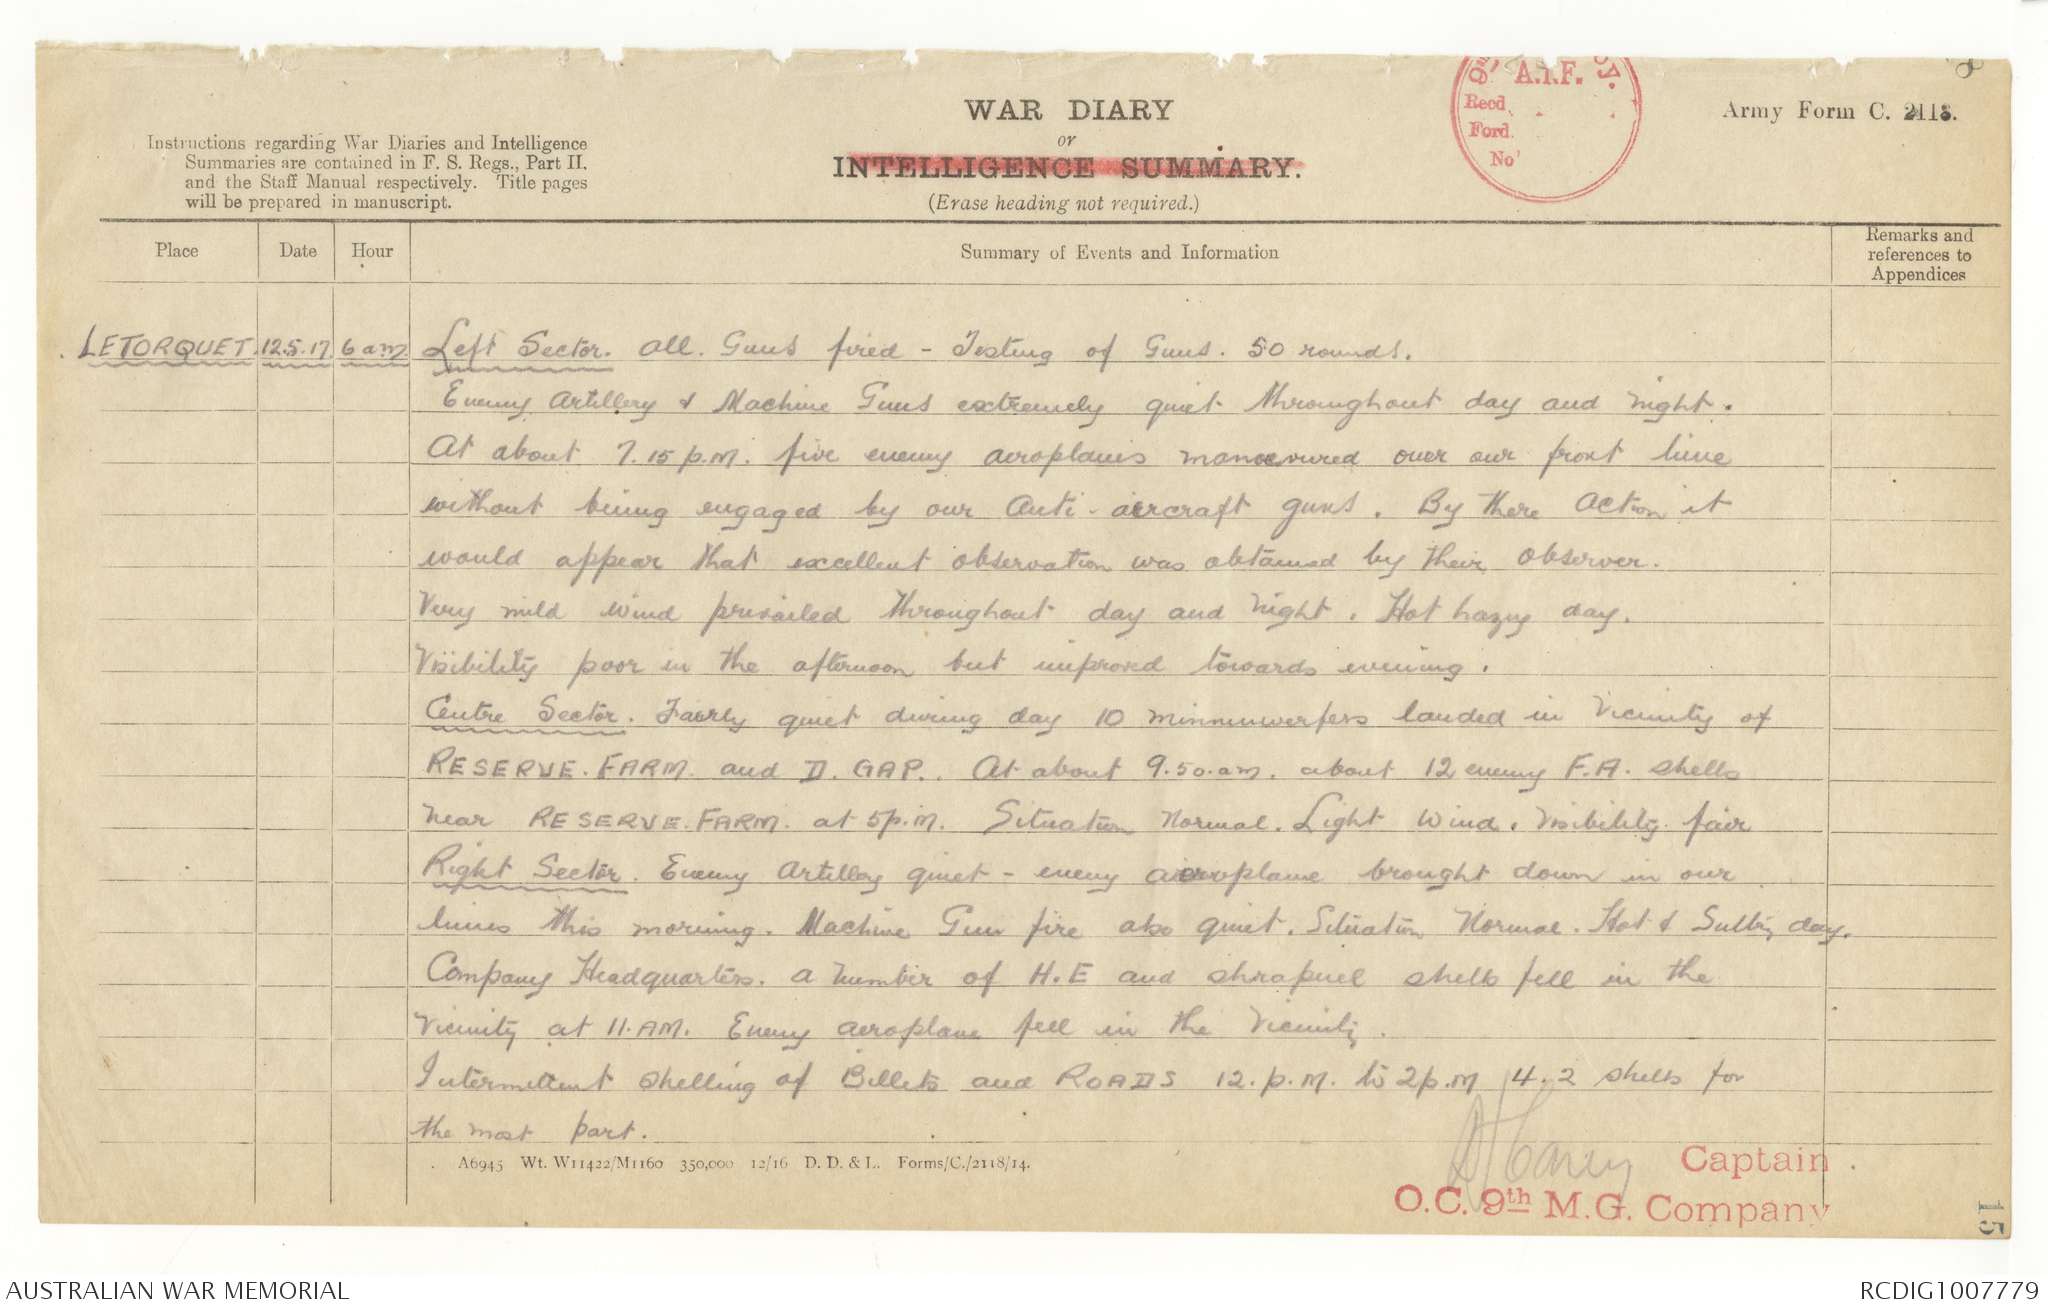 A.I.F.
Recd.
Ford.
No
8
WAR DIARY
or
INTELLIGENCE SUMMARY.
(Erase heading not required.)
Army Form C. 2118.
Instructions regarding War Diaries and Intelligence
Summaries are contained in F. S. Regs., Part II.
and the Staff Manual respectively. Title pages
will be prepared in manuscript.
Place Date Hour Summary of Events and Information Remarks and
references to
Appendices
LETORQUET. 12.5.17 6 am Left Sector. All. Guns fired - Testing of Guns. 50 rounds.
Enemy Artillery & Machine Guns extremely quiet throughout day and night.
At about 7.15 p.m. five enemy aeroplanes manoevured over our front line
without being engaged by our Anti-aircraft guns. By there action it
would appear that excellent observation was obtained by their observer.
Very mild wind prevailed throughout day and night. Hot hazy day.
Visibility poor in the afternoon but improved towards evening.
Centre Sector. Fairly quiet during day 10 minnenwerfers landed in vicinity of
RESERVE. FARM. and D. GAP. At about 9.50. am. about 12 enemy F.A. shells
near RESERVE. FARM. at 5 p.m. Situation normal. Light wind. Visibility fair
Right Sector. Enemy Artillery quiet - enemy aeroplane brought down in our
lines this morning. Machine Gun fire also quiet. Situation Normal. Hot & Sultry day.
Company Headquarters. A number of H.E and shrapnel shells fell in the
vicinity at 11. AM. Enemy aeroplane fell in the vicinity.
Intermittent shelling of Billets and ROADS 12. p.m. to 2 p.m 4.2 shells for
the most part.
A6945 Wt. W11422/M1160 350,000 12/16 D. D. & L. Forms/C./2118/14.
Captain
O.C. 9th M.G. Company
15
AUSTRALIAN WAR MEMORIAL RCDIG1007779